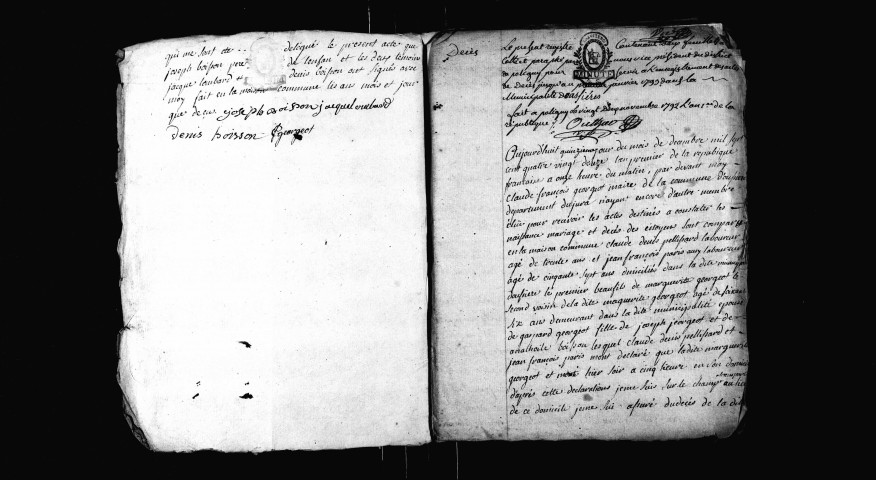 qui me sont été délegué le present acte que
joseph boisson pere de lenfan et les deux temoins
jacque loulard denis boisson ont signés avec
moy fait en la maison commune les an mois et jour
que decu joseph boisson jacque
denis boisson georgeot
Décès
Le present registre Contenant
Cotté et paraphé par nous vice président du district
de poligny pour servir a L'enregistrement des actes
de Decès jusqu'au premier janvier 1793 dans la
Municipalité
fait a poligny le vingt cinq novembre 1792 L'an 1er de la
république
MINUTE
Aujourd'huit quinzieme jour du mois de decembre mil sept
cent quatre vingt douze lan premier de la republique
francaise a onze heure du matin, par devant moy
claude françois georgeot maire de la commune
departement du jura nayan encore d'autre membre
élüe pour recevoir les actes destinés a constater les
naissance mariage et decès des citoyens sont comparus
en la maison commune claude denis pellissard laboureur
agé de trente ans et jean françois paris aussy laboureur
agé de cinquante sept ans domiciliés dans la dite municipalité
le premier beaufils de marguerite georgeot le
second voisin de la dite marguerite georgeot agé de soixante
six ans demeurant dans la dite municipalité epouse
de gaspard georgeot fille de joseph georgeot et de
anatoile boisson lesquel claude denis pellissard et
jean françois paris mont déclaré que la dite marguerite
georgeot et mort hier soir a cinq heure en son domicile
daprès cette déclarations je me suis sur le champ transporté au lieu
de ce domicile je me suis assuré du decès de la dite